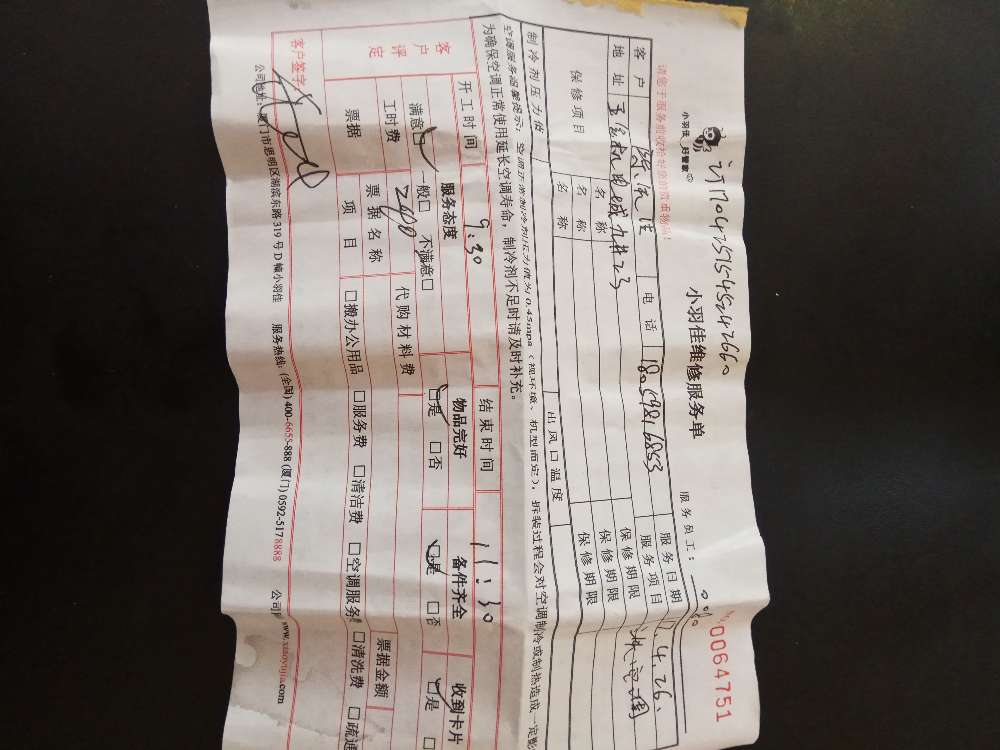 订170425154524266
小羽佳 好管家
小羽佳维修服务单
服务员工：
0064751
请您于服务前收检好您的贵重物品！
客户 电话 18059816853 服务日期 4.26.
地址 服务项目
保修项目 名称 保修期限
名称 保修期限
名称 保修期限
制冷剂压力值 出风口温度
空调服务温馨提示：空调正常制冷剂压力值为0.45mpa（视环境、机型而定），拆装过程会对空调制冷或制热造成一定影
为确保空调正常使用延长空调寿命，制冷剂不足时请及时补充。
开工时间 9:30 结束时间 11:30
客户评定 服务态度 物品完好 备件齐全 收到卡片
满意□ 一般□ 不满意□ □是 □否 □是 □否 □是 □
工时费 代购材料费
票据 票据名称 票据金额
项目 □搬办公用品 □服务费 □清洁费 □空调服务费 □清洗费 □疏通
客户签字
公司地址：厦门市思明区湖滨东路319号D幢小羽佳 服务热线：(全国)400-6655-888 (厦门)0592-5178888 公司网 www.xiaoyujia.com